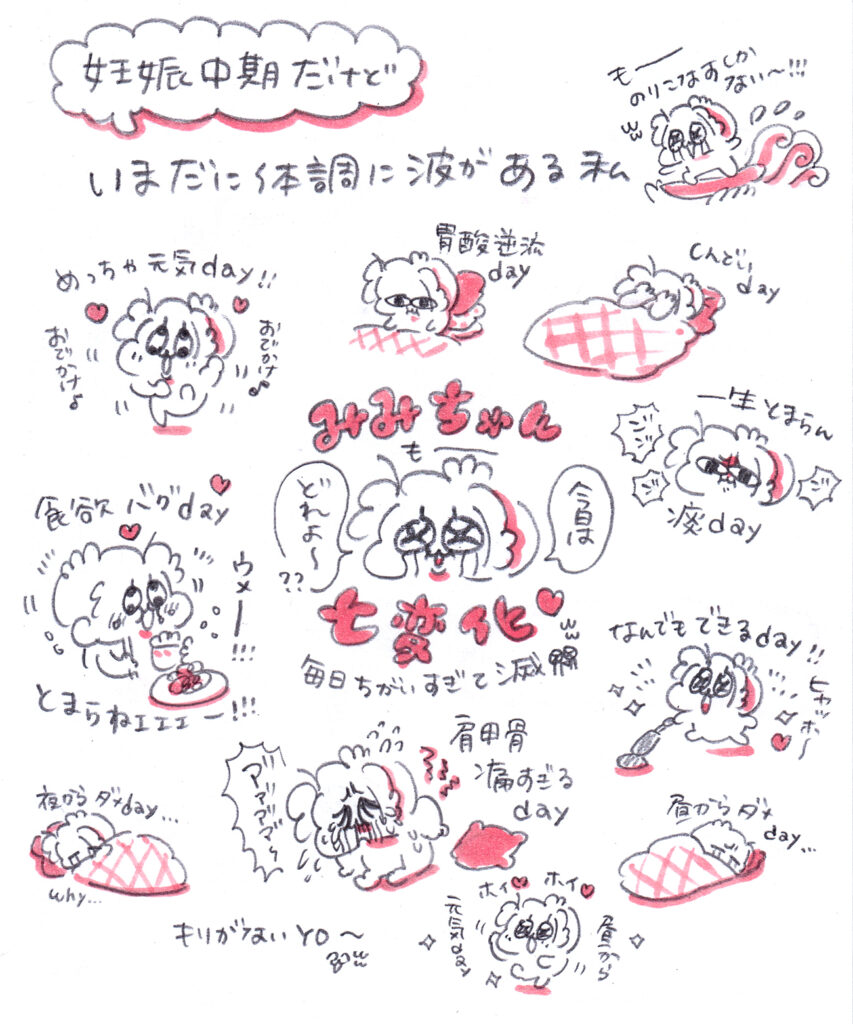 妊娠中期だけど
いまだに体調に波がある私
もー
のりこなすしか
ない〜!!!
めっちゃ元気day!!
おでかけ♪
おでかけ♪
胃酸逆流
day
しんどいday
みみちゃん
もー
どれよ〜
??
今日は
七変化
毎日ちがいすぎて滅
一生とまらん
ゴゴ
ゴ
ゴ
痰day
食欲バグday
ウメー!!!
とまらねェェェー!!!
なんでもできるday!!
ヒャッホ〜
肩甲骨
痛すぎる
day
ア゙ア゙ア゙ア゙ア゙ッ
夜からダメday...
why...
昼からダメ
day...
ホイ
ホイ
昼から
元気day
キリがないYO〜